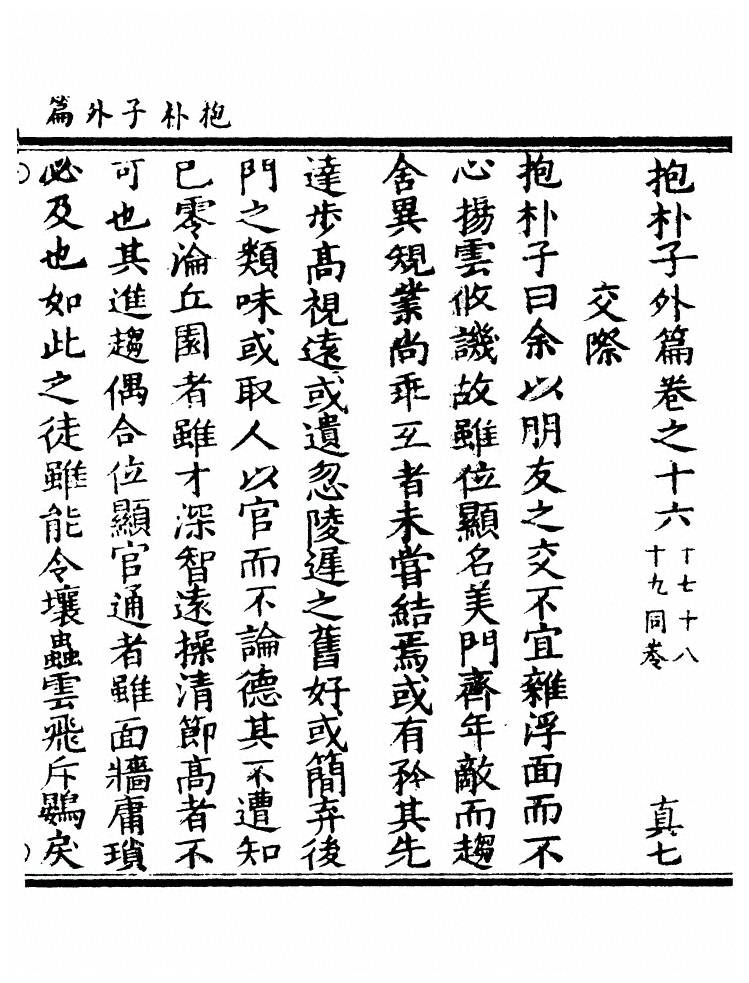 抱朴子外篇
抱朴子外篇卷之十六 十七十八十九同卷 真七
交際
抱朴子曰余以朋友之交不宜雜浮面而不
心揚雲攸譏故雖位顯名美門齊年敵而趨
舍異規業尚乖互者未嘗結焉或有矜其先
達步高視遠或遺忽陵遲之舊好或簡弃後
門之類味或取人以官而不論德其不遭知
已零淪丘園者雖才深智遠操清節高者不
可也其進趨偶合位顯官通者雖面牆庸瑣
必及也如此之徒雖能令壤蟲雲飛斥鷃戾